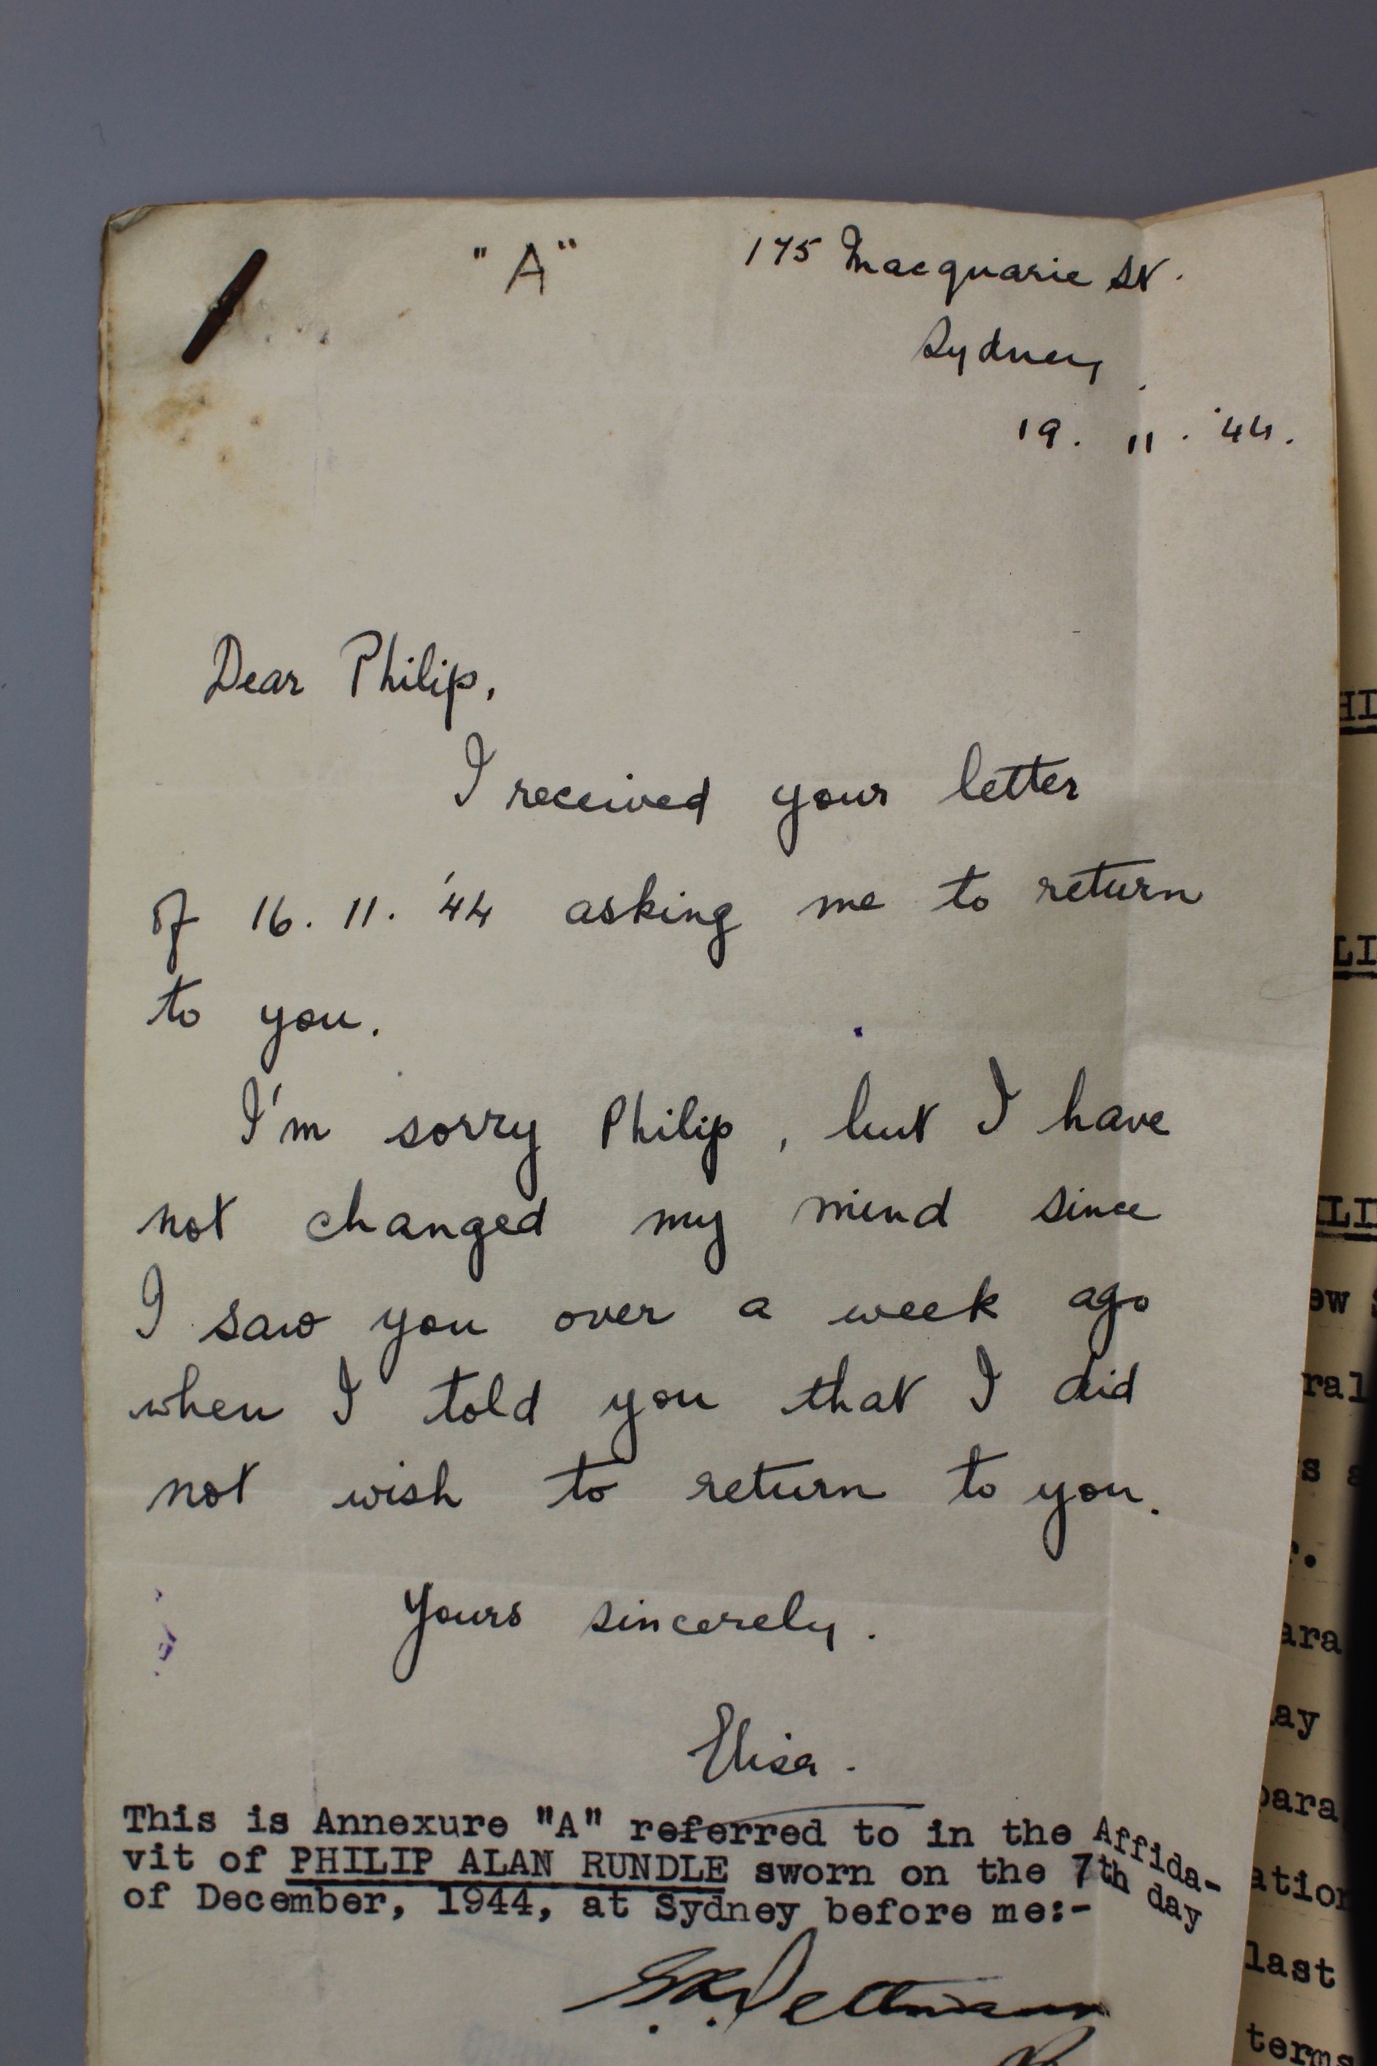 "A"
175 Macquarie St.
Sydney.
19. 11. '44.
Dear Philip,
I received your letter
of 16. 11. '44 asking me to return
to you.
I'm sorry Philip, but I have
not changed my mind since
I saw you over a week ago
when I told you that I did
not wish to return to you.
Yours sincerely.
Elisa.
This is Annexure "A" referred to in the Affida-
vit of PHILIP ALAN RUNDLE sworn on the 7th day
of December, 1944, at Sydney before me:-
HI
LI
LI
ew
ral
s a
r.
ara
ay
para
ation
last
terms